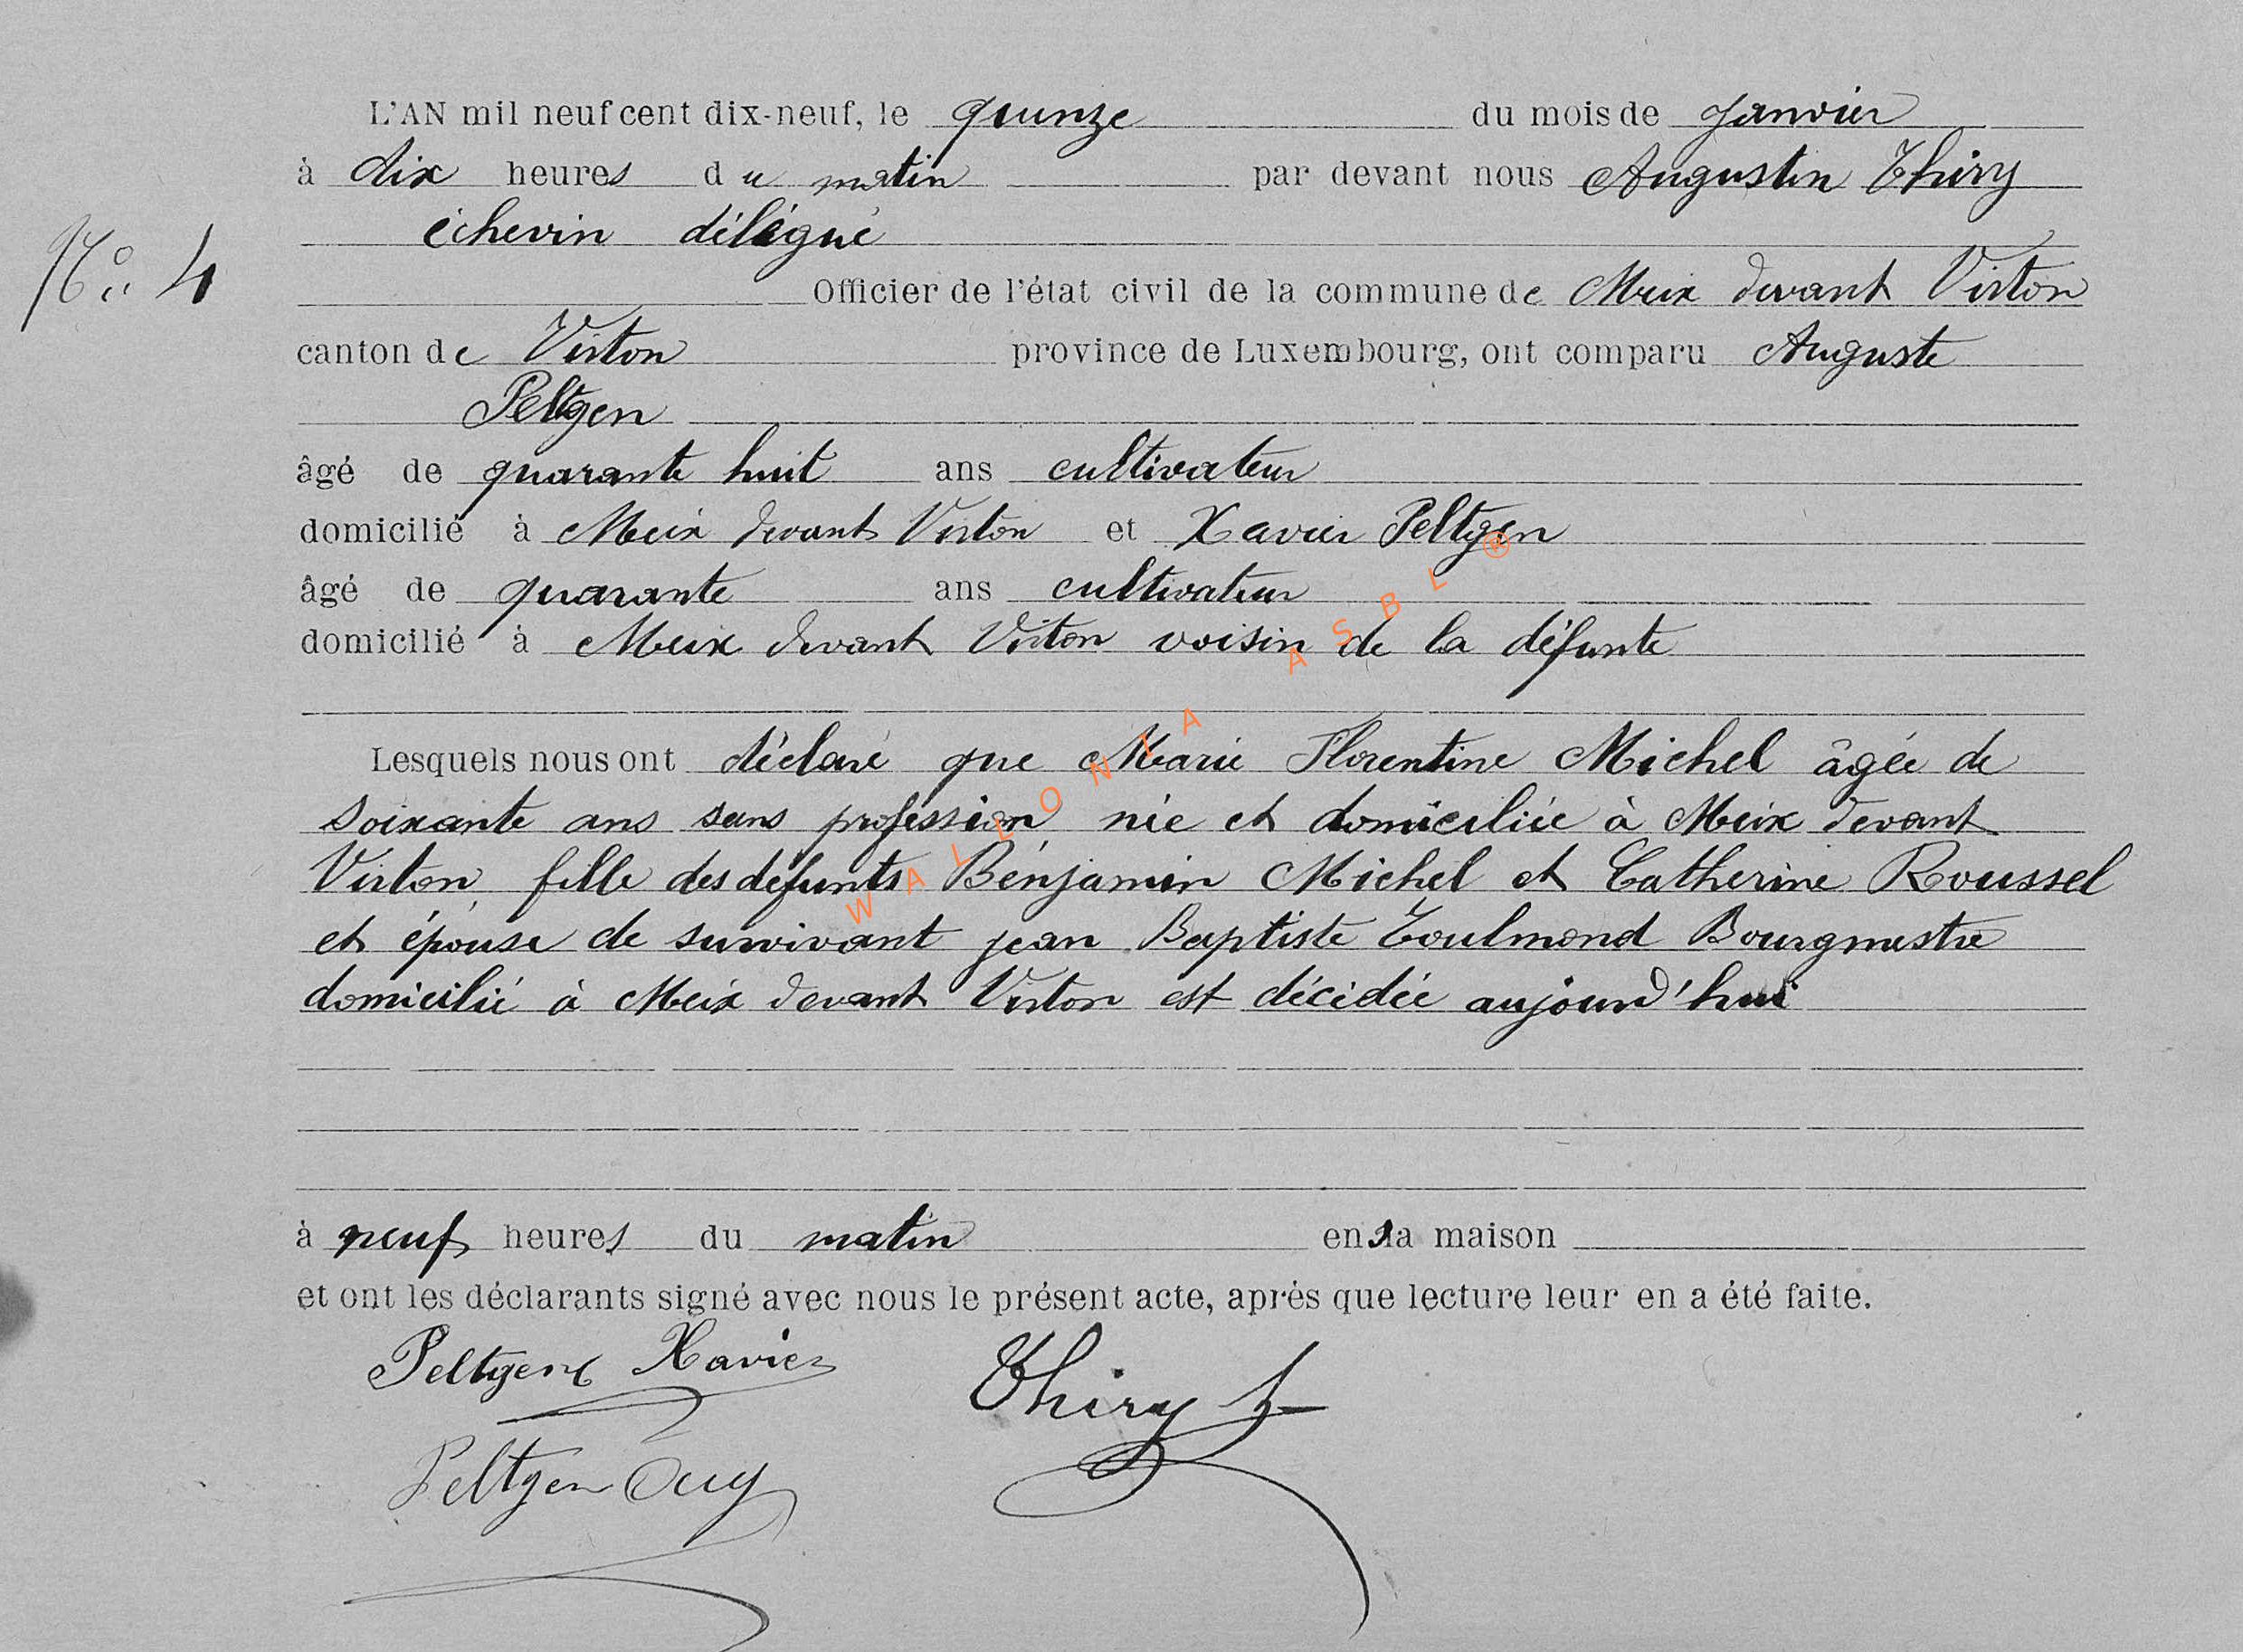 L'AN mil neuf cent dix-neuf, le quinze du mois de Janvier
à dix heures du matin par devant nous Augustin Thiry
échevin délégué
N° 4
Officier de l'état civil de la commune de Meix devant Virton
canton de Virton province de Luxembourg, ont comparu Auguste
Peltgen
âgé de quarante huit ans cultivateur
domicilié à Meix devant Virton et Xavier Peltgen
âgé de quarante ans cultivateur
domicilié à Meix devant Virton voisin de la défunte
Lesquels nous ont déclaré que Marie Florentine Michel âgée de
soixante ans sans profession née et domiciliée à Meix devant
Virton, fille des défunts Bénjamin Michel et Catherine Roussel
et épouse de survivant jean Baptiste Toulmond Bourgmestre
domicilié à Meix devant Virton est décédée aujourd'hui
à neuf heures du matin en sa maison
et ont les déclarants signé avec nous le présent acte, après que lecture leur en a été faite.
Peltgen Xavier
Thiry
Peltgen Aug
WALLONIA ASBL ®